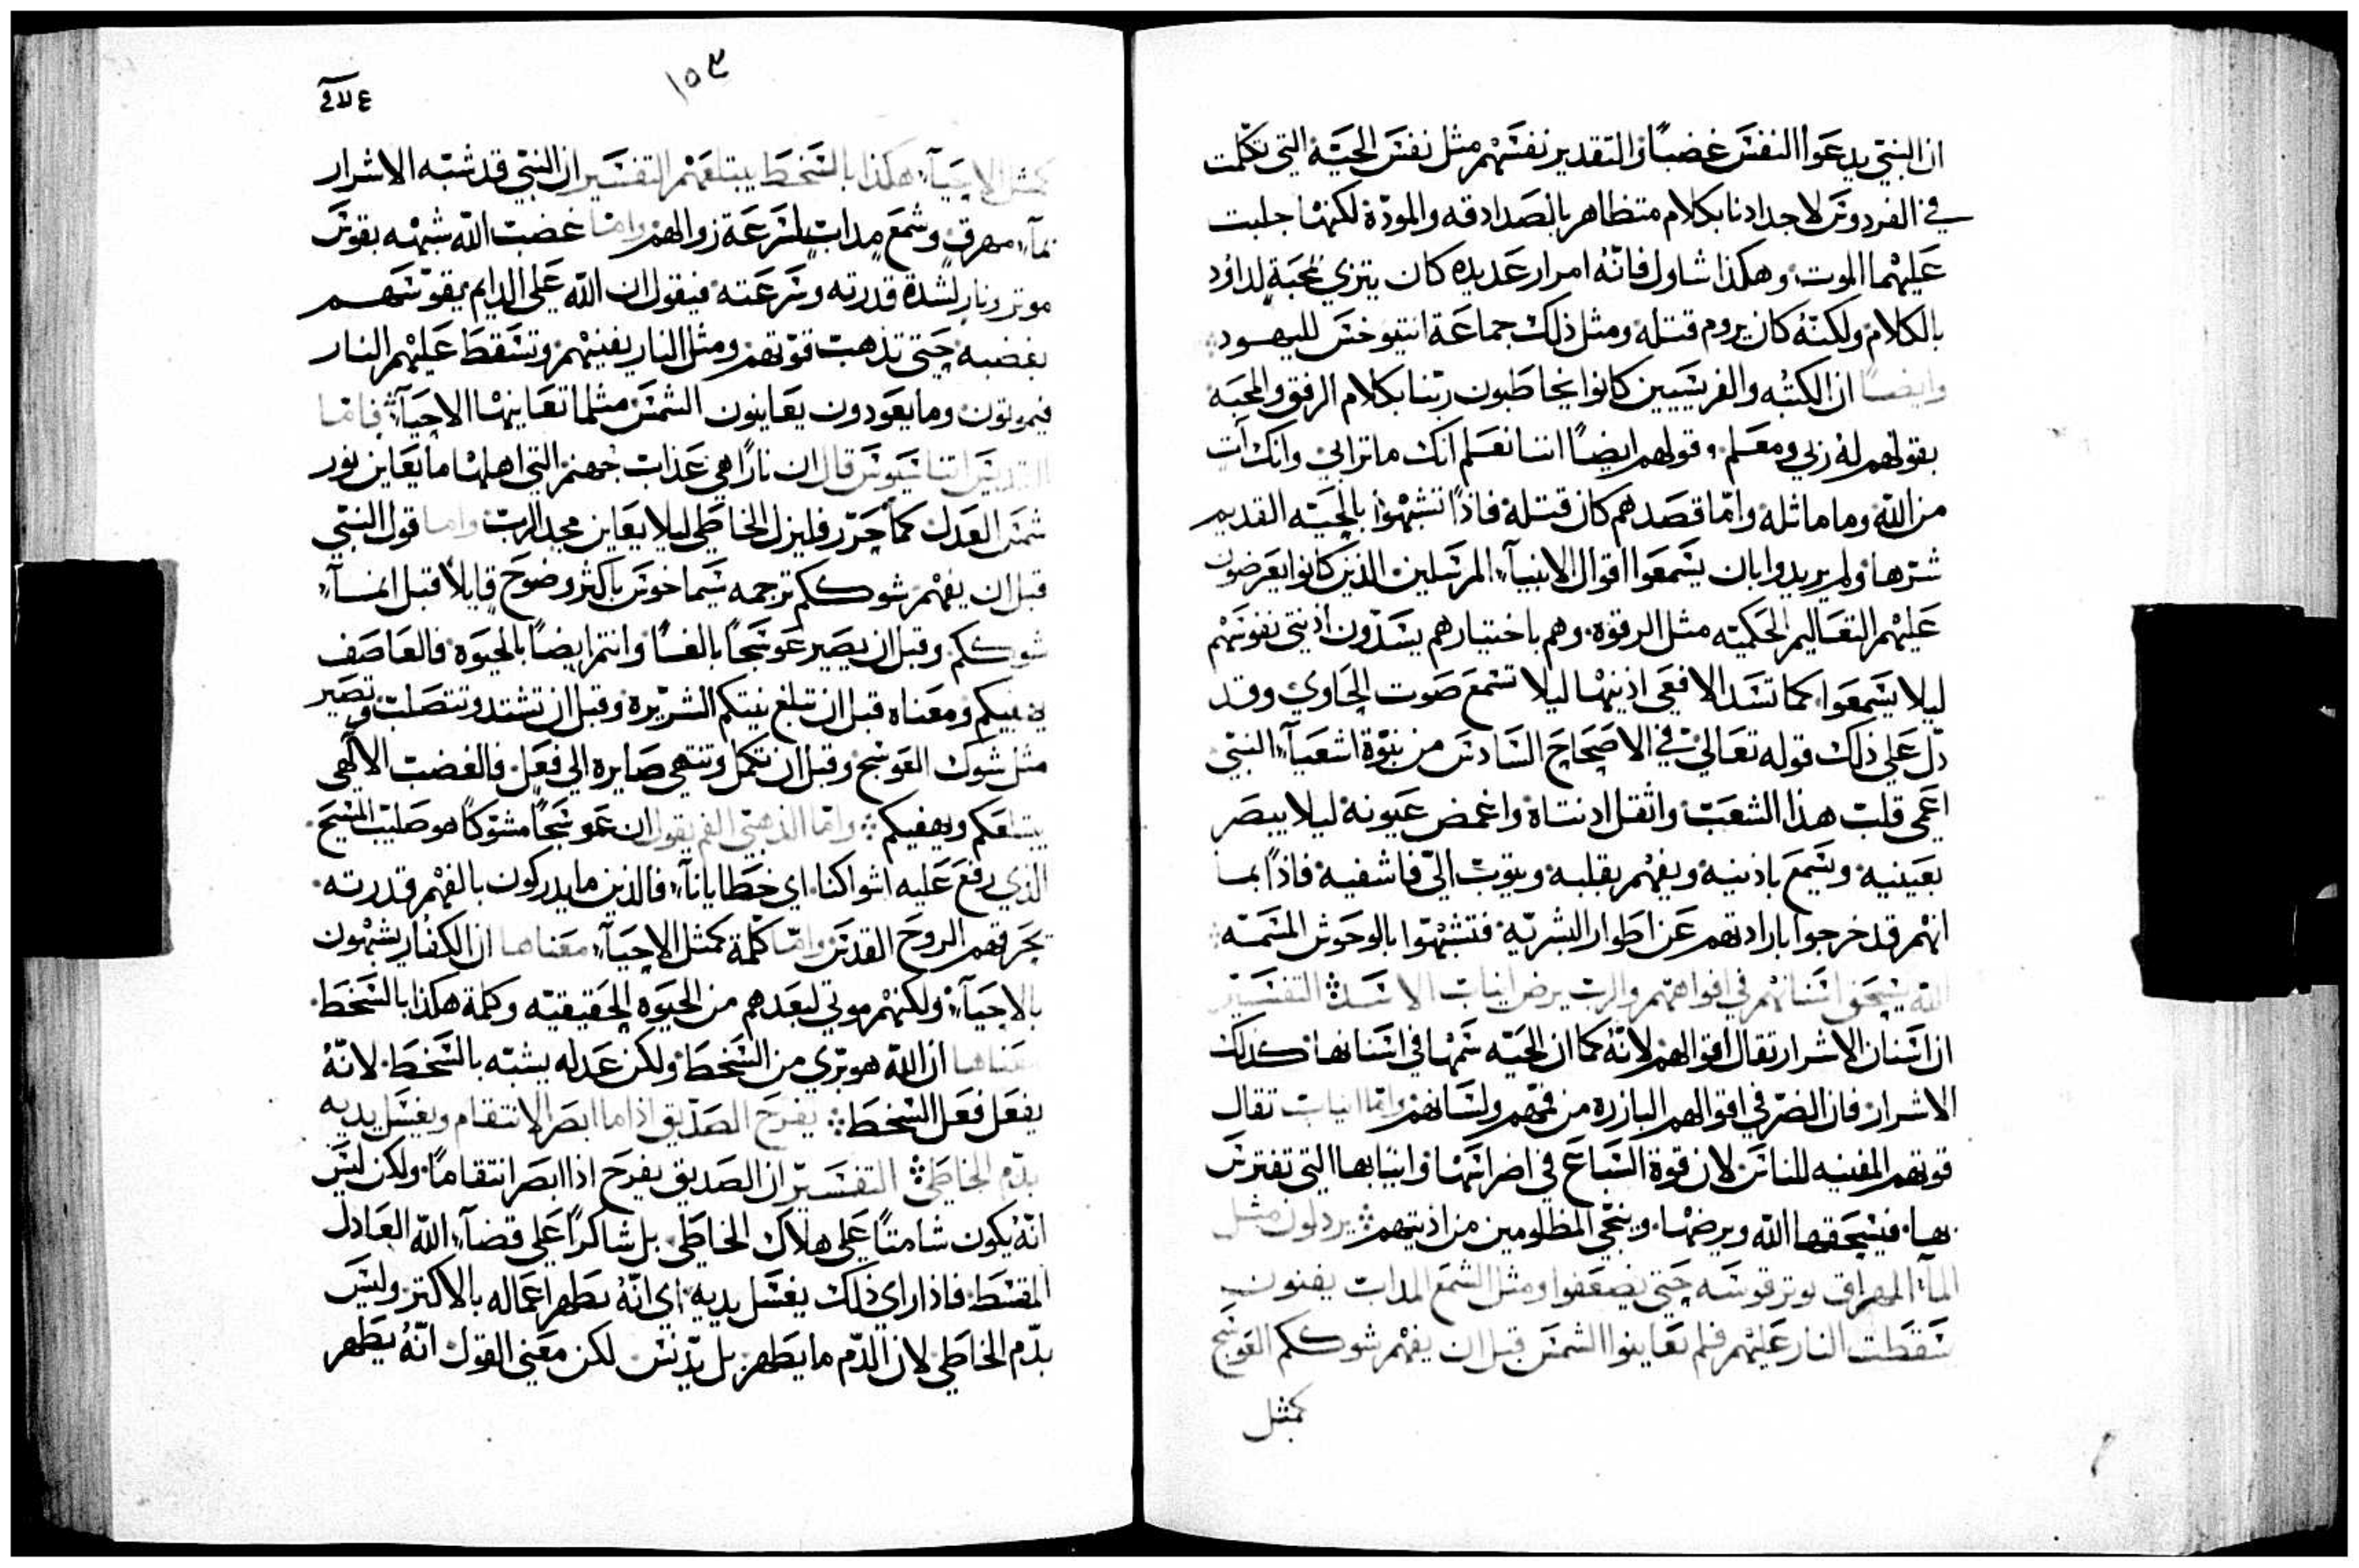 ان النبي يدعوا النفس غضباً والتقدير نفسهم مثل نفس الحية التي تكلمت
في الفردوس لاجدادنا بكلام متظاهر بالصداقه والمودة لكنها جلبت
عليهما الموت وهكذا شاول فانه امرار عديده كان يتزي بمحبة لداود
بالكلام ولكنه كان يروم قتله ومثل ذلك جماعة انتيوخس لليهود
وايضاً ان الكتبه والفريسيين كانوا يخاطبون ربنا بكلام الرفق والمحبه
بقولهم له ربي ومعلم وقولهم ايضاً اننا نعلم انك ماترايي وانك اتٍ
من الله وما ماثله واما قصدهم كان قتله فاذاً تشبهوا بالحيه القديم
شرها ولم يريدوا بان يسمعوا اقوال الانبيآء المرسلين الذين كانوا يعرضون
عليهم التعاليم الحكميه مثل الرقوة وهم باختيارهم يسدون اذني نفوسهم
ليلا يسمعوا كما تسد الافعى اذنيها ليلا تسمع صوت الحاوي وقد
دل على ذلك قوله تعالى في الاصحاح السادس من نبوة اشعيآء النبي
اعمى قلب هذا الشعب واثقل اذنتاة واغمض عيونة ليلا يبصر
بعينيه ويسمع باذنيه ويفهم بقلبه ويتوب الى فاشفيه فاذاً بما
انهم قد خرجوا بارادتهم عن اطوار البشريه فتشبهوا بالوحوش المسمه
الله يسحق اسنانهم في افواههم والرب يرض انياب الاسد التفسير
ان اسنان الاشرار تقال اقوالهم لانه كما ان الحيه سمها في اسنانها كذلك
الاشرار فان الضر في اقوالهم البارزه من فمهم ولسانهم واما انياب تقال
قوتهم المفنيه للناس لان قوة السباع في اضراسها وانيابها التي تفترس
بها فيسحقها الله ويرضها وينجي المظلومين من اذيتهم يردلون مثل
المآء المهراق يوتر قوسه حتى يضعفوا ومثل الشمع المداب يفنون
سقطت النار عليهم فلم يعاينوا الشمس قبل ان يفهم شوككم العوسج
كمثل
١٥٣
كمثل الاحيآء هكذا بالسخط يبتلعهم التفسير ان النبي قد شبه الاشرار
بمآء مهرق وشمع مداب لسرعة زوالهم واما غضب الله شبهه بقوس
موتر ونار لشدة قدرته وسرعته فيقول ان الله على الدايم يقوسهم
بغضبه حتى تذهب قوتهم ومثل النار يفنيهم وتسقط عليهم النار
فيموتون وما يعودون يعاينون الشمس مثلما تعاينها الاحيآء فاما
القديس اتناسيوس قال ان ناراً هي عذاب جهنم التي اهلها ما يعاين نور
شمس العدل كما حرر فليزل الخاطي ليلا يعاين مجد الرب واما قول النبي
قبل ان يفهم شوككم ترجمه سيماخوس باكثر وضوح قايلاً قبل انمسآء
شوككم وقبل ان يصير عوسجاً بالغساً وانتم ايضاً بالحيوة فالعاصف
يفنيكم ومعناه قبل ان تبلغ نيتكم الشريرة وقبل ان تشتد وتتصلب وتصير
مثل شوك العوسج وقبل ان تكمل وتنتهي صايره الى فعل فالغضب الالهي
يبتلعكم ويفنيكم واما الذهبي الفم يقول ان عوسجاً مشوكاً هو صليب المسيح
الذي رفع عليه اشواكنا اي خطايانآء فالذين ما يدركون بالفهم قدرته
يحرقهم الروح القدس واما كلمة كمثل الاحيآء معناها ان الكفار يشبهون
بالاحيآء ولكنهم موتى لبعدهم من الحيوه الحقيقيه وكلمة هكذا بالسخط
معناها ان الله هو بري من السخط ولكن عدله يشبه بالسخط لانه
يفعل فعل السخط يفرح الصديق اذا ما ابصر الانتقام ويغسل يديه
بدم الخاطي التفسير ان الصديق يفرح اذا ابصر انتقاماً ولكن ليس
انه يكون شامتاً على هلاك الخاطي بل شاكراً على قضآء الله العادل
المقسط فاذا راي ذلك يغسل يديه اي انه يطهر اعماله بالاكتر وليس
بدم الخاطي لان الدم ما يطهر بل يدنس لكن معنى القول انه يطهر